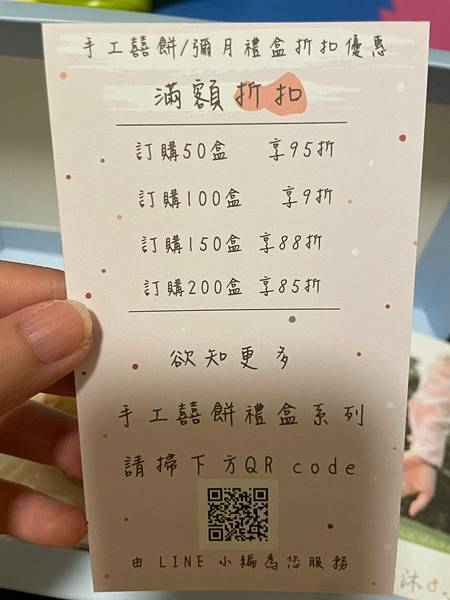 手工囍餅/彌月禮盒折扣優惠
滿額折扣
訂購50盒 享95折
訂購100盒 享9折
訂購150盒 享88折
訂購200盒 享85折
欲知更多
手工囍餅禮盒系列
請掃下方QR code
由 LINE 小編為您服務
沐